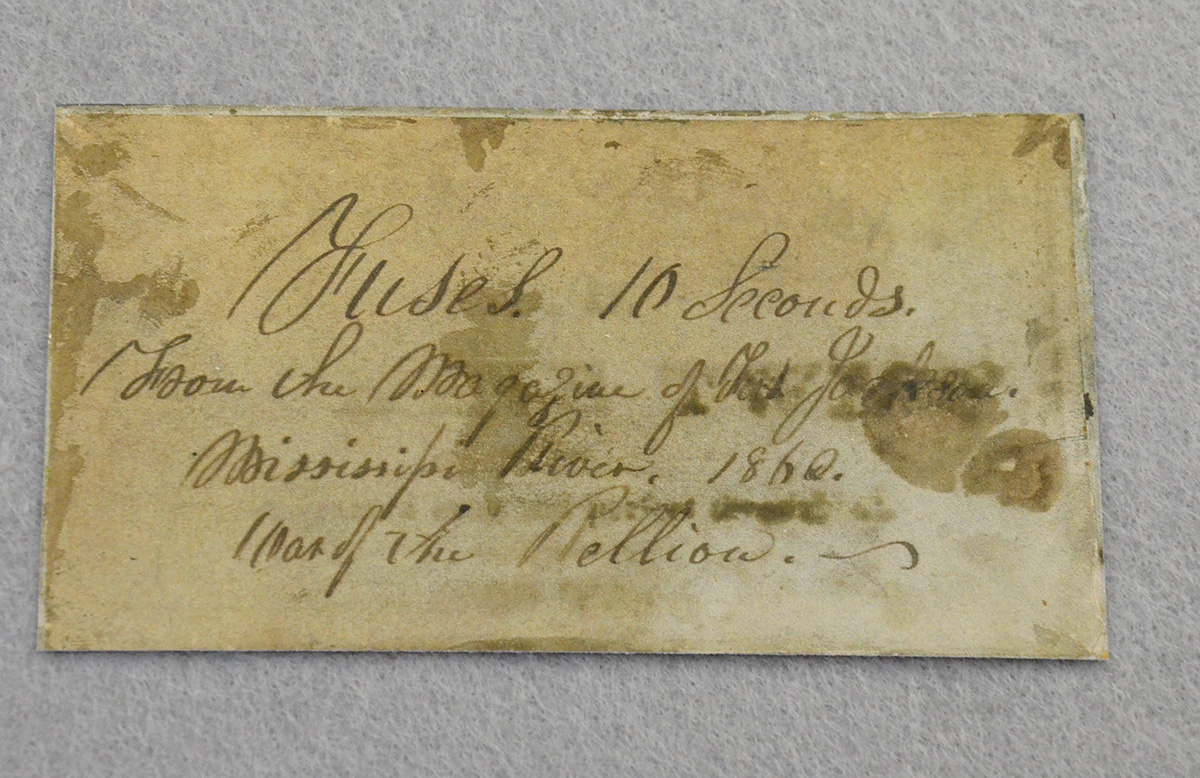 Fuses. 10 Seconds.
From the Magazine of Fort Jackson.
Mississipi River. 1862.
War of the Rellion.